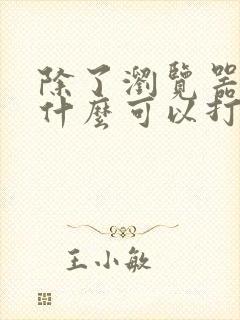 除了瀏覽器
什麼可以打
王小敏